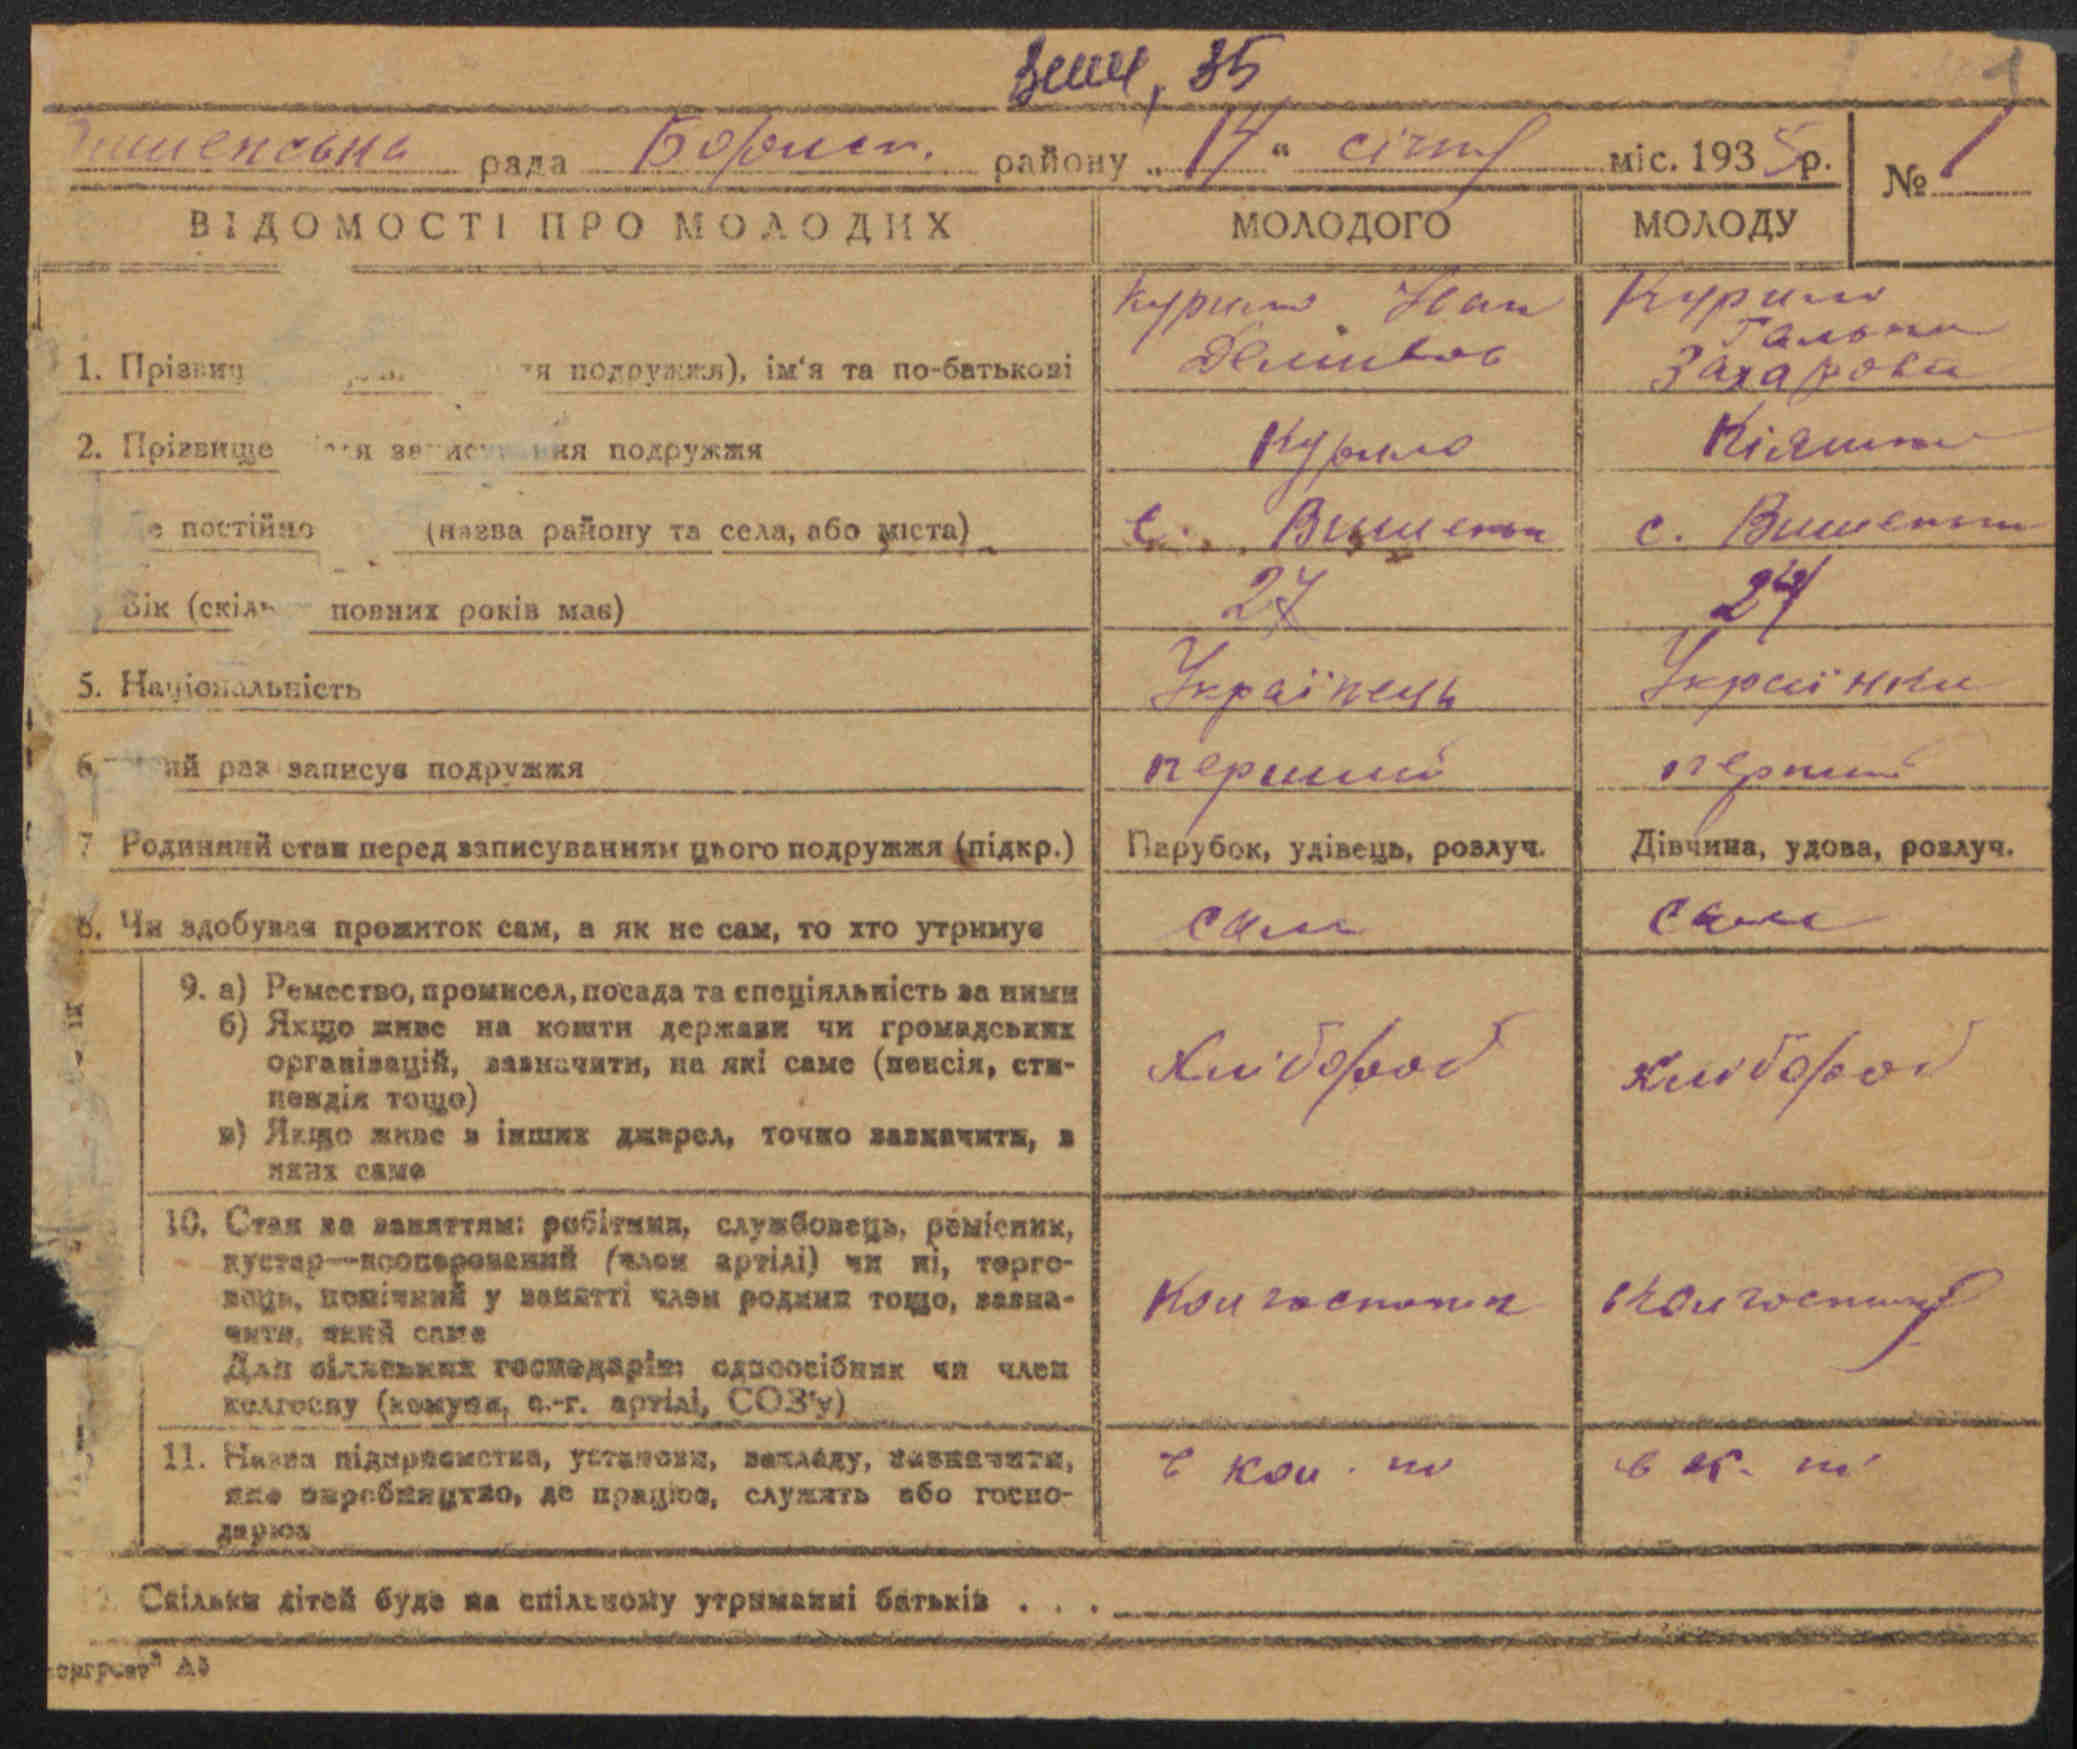 35
1
рада Борисп. району „14" січня міс. 1935р. № 1
ВІДОМОСТІ ПРО МОЛОДИХ МОЛОДОГО МОЛОДУ
Курило Іван Курило
1. Прізвищ подружжя), ім'я та по-батькові Захаровна
2. Прізвище записування подружжя Курило
постійно (назва району та села, або міста) с. Вишеньки с. Вишеньки
Вік (скільки повних років має) 27
5. Національність Українець Українка
6 раз записує подружжя перший перший
7 Родинний стан перед записуванням цього подружжя (підкр.) Парубок, удівець, розлуч. Дівчина, удова, розлуч.
8. Чи здобував прожиток сам, а як не сам, то хто утримує сам сама
9. а) Ремество, промисел, посада та спеціяльність за ними
б) Якщо живе на кошти держави чи громадських
організацій, зазначити, на які саме (пенсія, сти-
пендія тощо)
в) Якщо живе з інших джерел, точно зазначити, з
яких саме
Хлібороб хлібороб
10. Стан за заняттям: робітник, службовець, ремісник,
кустар—кооперований (член артілі) чи ні, торго-
вець, помічний у занятті член родини тощо, зазна-
чити, який саме
Для сільських господарів: одноосібник чи член
колгоспу (комуни, с.-г. артілі, СОЗ'у)
11. Назва підприємства, установи, закладу, зазначити,
яке виробництво, де працює, служить або госпо-
дарює
Скільки дітей буде на спільному утриманні батьків . . .